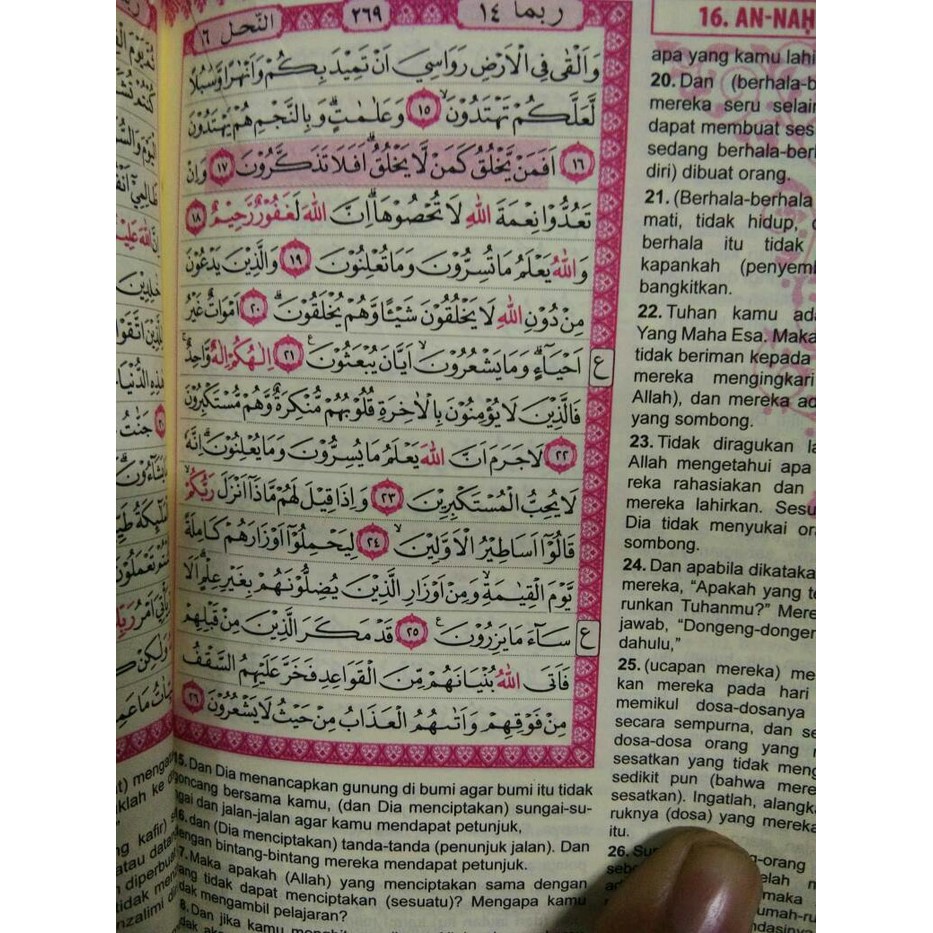 ربما ١٤
٢٦٩
النحل ١٦
وَاَلْقٰى فِى الْاَرْضِ رَوَاسِيَ اَنْ تَمِيْدَ بِكُمْ وَاَنْهٰرًا وَّسُبُلًا
لَّعَلَّكُمْ تَهْتَدُوْنَۙ ١٥ وَعَلٰمٰتٍۗ وَبِالنَّجْمِ هُمْ يَهْتَدُوْنَ
١٦ اَفَمَنْ يَّخْلُقُ كَمَنْ لَّا يَخْلُقُۗ اَفَلَا تَذَكَّرُوْنَ ١٧ وَاِنْ
تَعُدُّوْا نِعْمَةَ اللّٰهِ لَا تُحْصُوْهَاۗ اِنَّ اللّٰهَ لَغَفُوْرٌ رَّحِيْمٌ ١٨
وَاللّٰهُ يَعْلَمُ مَا تُسِرُّوْنَ وَمَا تُعْلِنُوْنَ ١٩ وَالَّذِيْنَ يَدْعُوْنَ
مِنْ دُوْنِ اللّٰهِ لَا يَخْلُقُوْنَ شَيْـًٔا وَّهُمْ يُخْلَقُوْنَۗ ٢٠ اَمْوَاتٌ غَيْرُ
اَحْيَاۤءٍۗ وَمَا يَشْعُرُوْنَۙ اَيَّانَ يُبْعَثُوْنَ ࣖ ٢١ اِلٰهُكُمْ اِلٰهٌ وَّاحِدٌۚ
ع
فَالَّذِيْنَ لَا يُؤْمِنُوْنَ بِالْاٰخِرَةِ قُلُوْبُهُمْ مُّنْكِرَةٌ وَّهُمْ مُّسْتَكْبِرُوْنَ
٢٢ لَاجَرَمَ اَنَّ اللّٰهَ يَعْلَمُ مَا يُسِرُّوْنَ وَمَا يُعْلِنُوْنَۗ اِنَّهٗ
لَا يُحِبُّ الْمُسْتَكْبِرِيْنَ ٢٣ وَاِذَا قِيْلَ لَهُمْ مَّاذَآ اَنْزَلَ رَبُّكُمْۙ
قَالُوْٓا اَسَاطِيْرُ الْاَوَّلِيْنَۙ ٢٤ لِيَحْمِلُوْٓا اَوْزَارَهُمْ كَامِلَةً
يَّوْمَ الْقِيٰمَةِۙ وَمِنْ اَوْزَارِ الَّذِيْنَ يُضِلُّوْنَهُمْ بِغَيْرِ عِلْمٍۗ اَلَا
سَاۤءَ مَا يَزِرُوْنَ ࣖ ٢٥ قَدْ مَكَرَ الَّذِيْنَ مِنْ قَبْلِهِمْ
ع
فَاَتَى اللّٰهُ بُنْيَانَهُمْ مِّنَ الْقَوَاعِدِ فَخَرَّ عَلَيْهِمُ السَّقْفُ
مِنْ فَوْقِهِمْ وَاَتٰىهُمُ الْعَذَابُ مِنْ حَيْثُ لَا يَشْعُرُوْنَ ٢٦
15. Dan Dia menancapkan gunung di bumi agar bumi itu tidak
goncang bersama kamu, (dan Dia menciptakan) sungai-su-
ngai dan jalan-jalan agar kamu mendapat petunjuk,
16. dan (Dia menciptakan) tanda-tanda (penunjuk jalan). Dan
dengan bintang-bintang mereka mendapat petunjuk.
17. Maka apakah (Allah) yang menciptakan sama dengan
yang tidak dapat menciptakan (sesuatu)? Mengapa kamu
tidak mengambil pelajaran?
18. Dan jika kamu
16. AN-NAḤ
apa yang kamu lahi
20. Dan (berhala-b
mereka seru selain
dapat membuat ses
sedang berhala-ber
diri) dibuat orang.
21. (Berhala-berhala
mati, tidak hidup,
berhala itu tidak
kapankah (penyem
bangkitkan.
22. Tuhan kamu ad
Yang Maha Esa. Maka
tidak beriman kepada
mereka mengingkari
Allah), dan mereka ad
yang sombong.
23. Tidak diragukan la
Allah mengetahui apa
reka rahasiakan dan
mereka lahirkan. Sesu
Dia tidak menyukai or
sombong.
24. Dan apabila dikataka
mereka, “Apakah yang te
runkan Tuhanmu?” Mere
jawab, “Dongeng-donger
dahulu,”
25. (ucapan mereka) me
kan mereka pada hari
memikul dosa-dosanya
secara sempurna, dan se
dosa-dosa orang yang
sesatkan yang tidak meng
sedikit pun (bahwa mere
sesatkan). Ingatlah, alangk
ruknya (dosa) yang mereka
itu.
26.